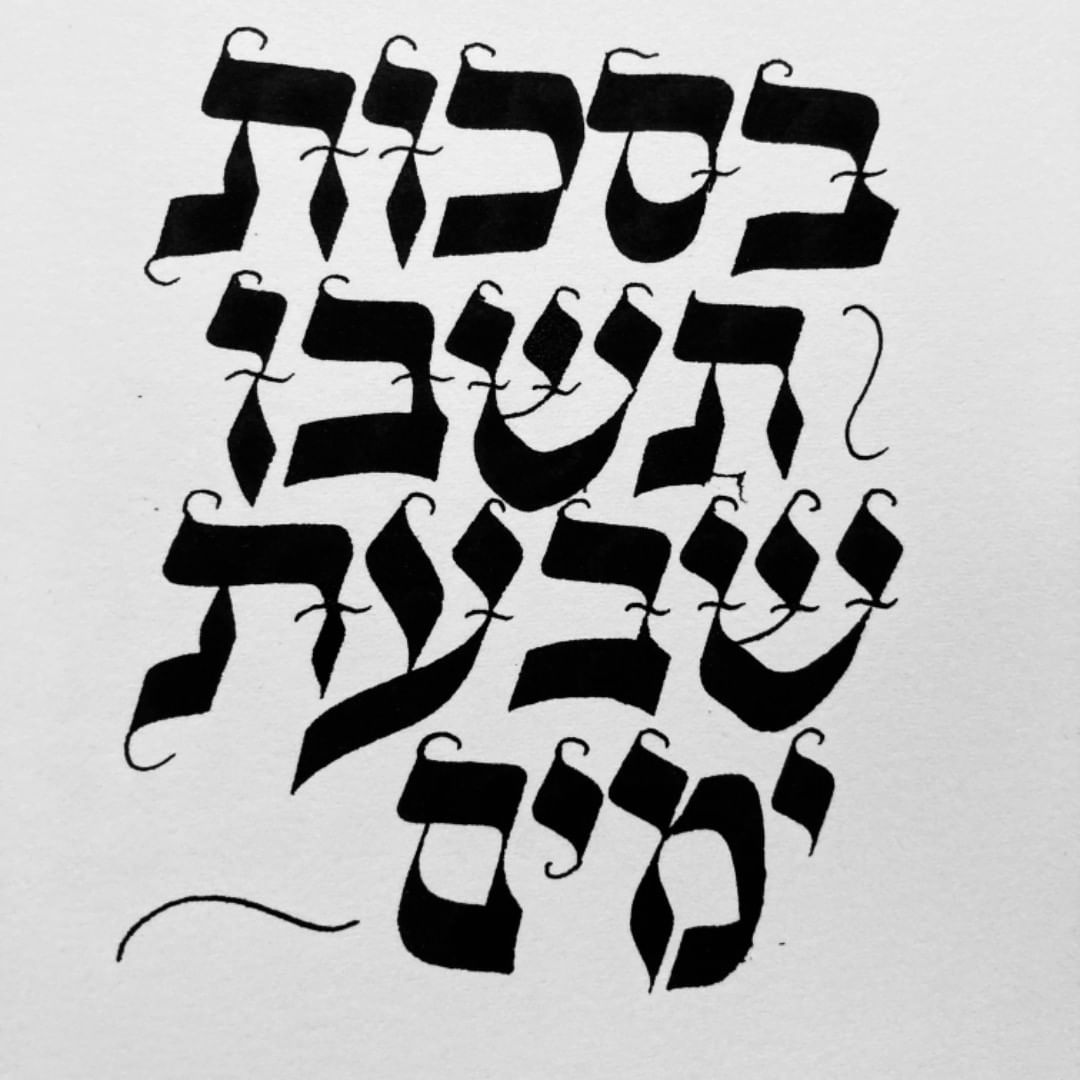 בסכות
תשבו
שבעת
ימים